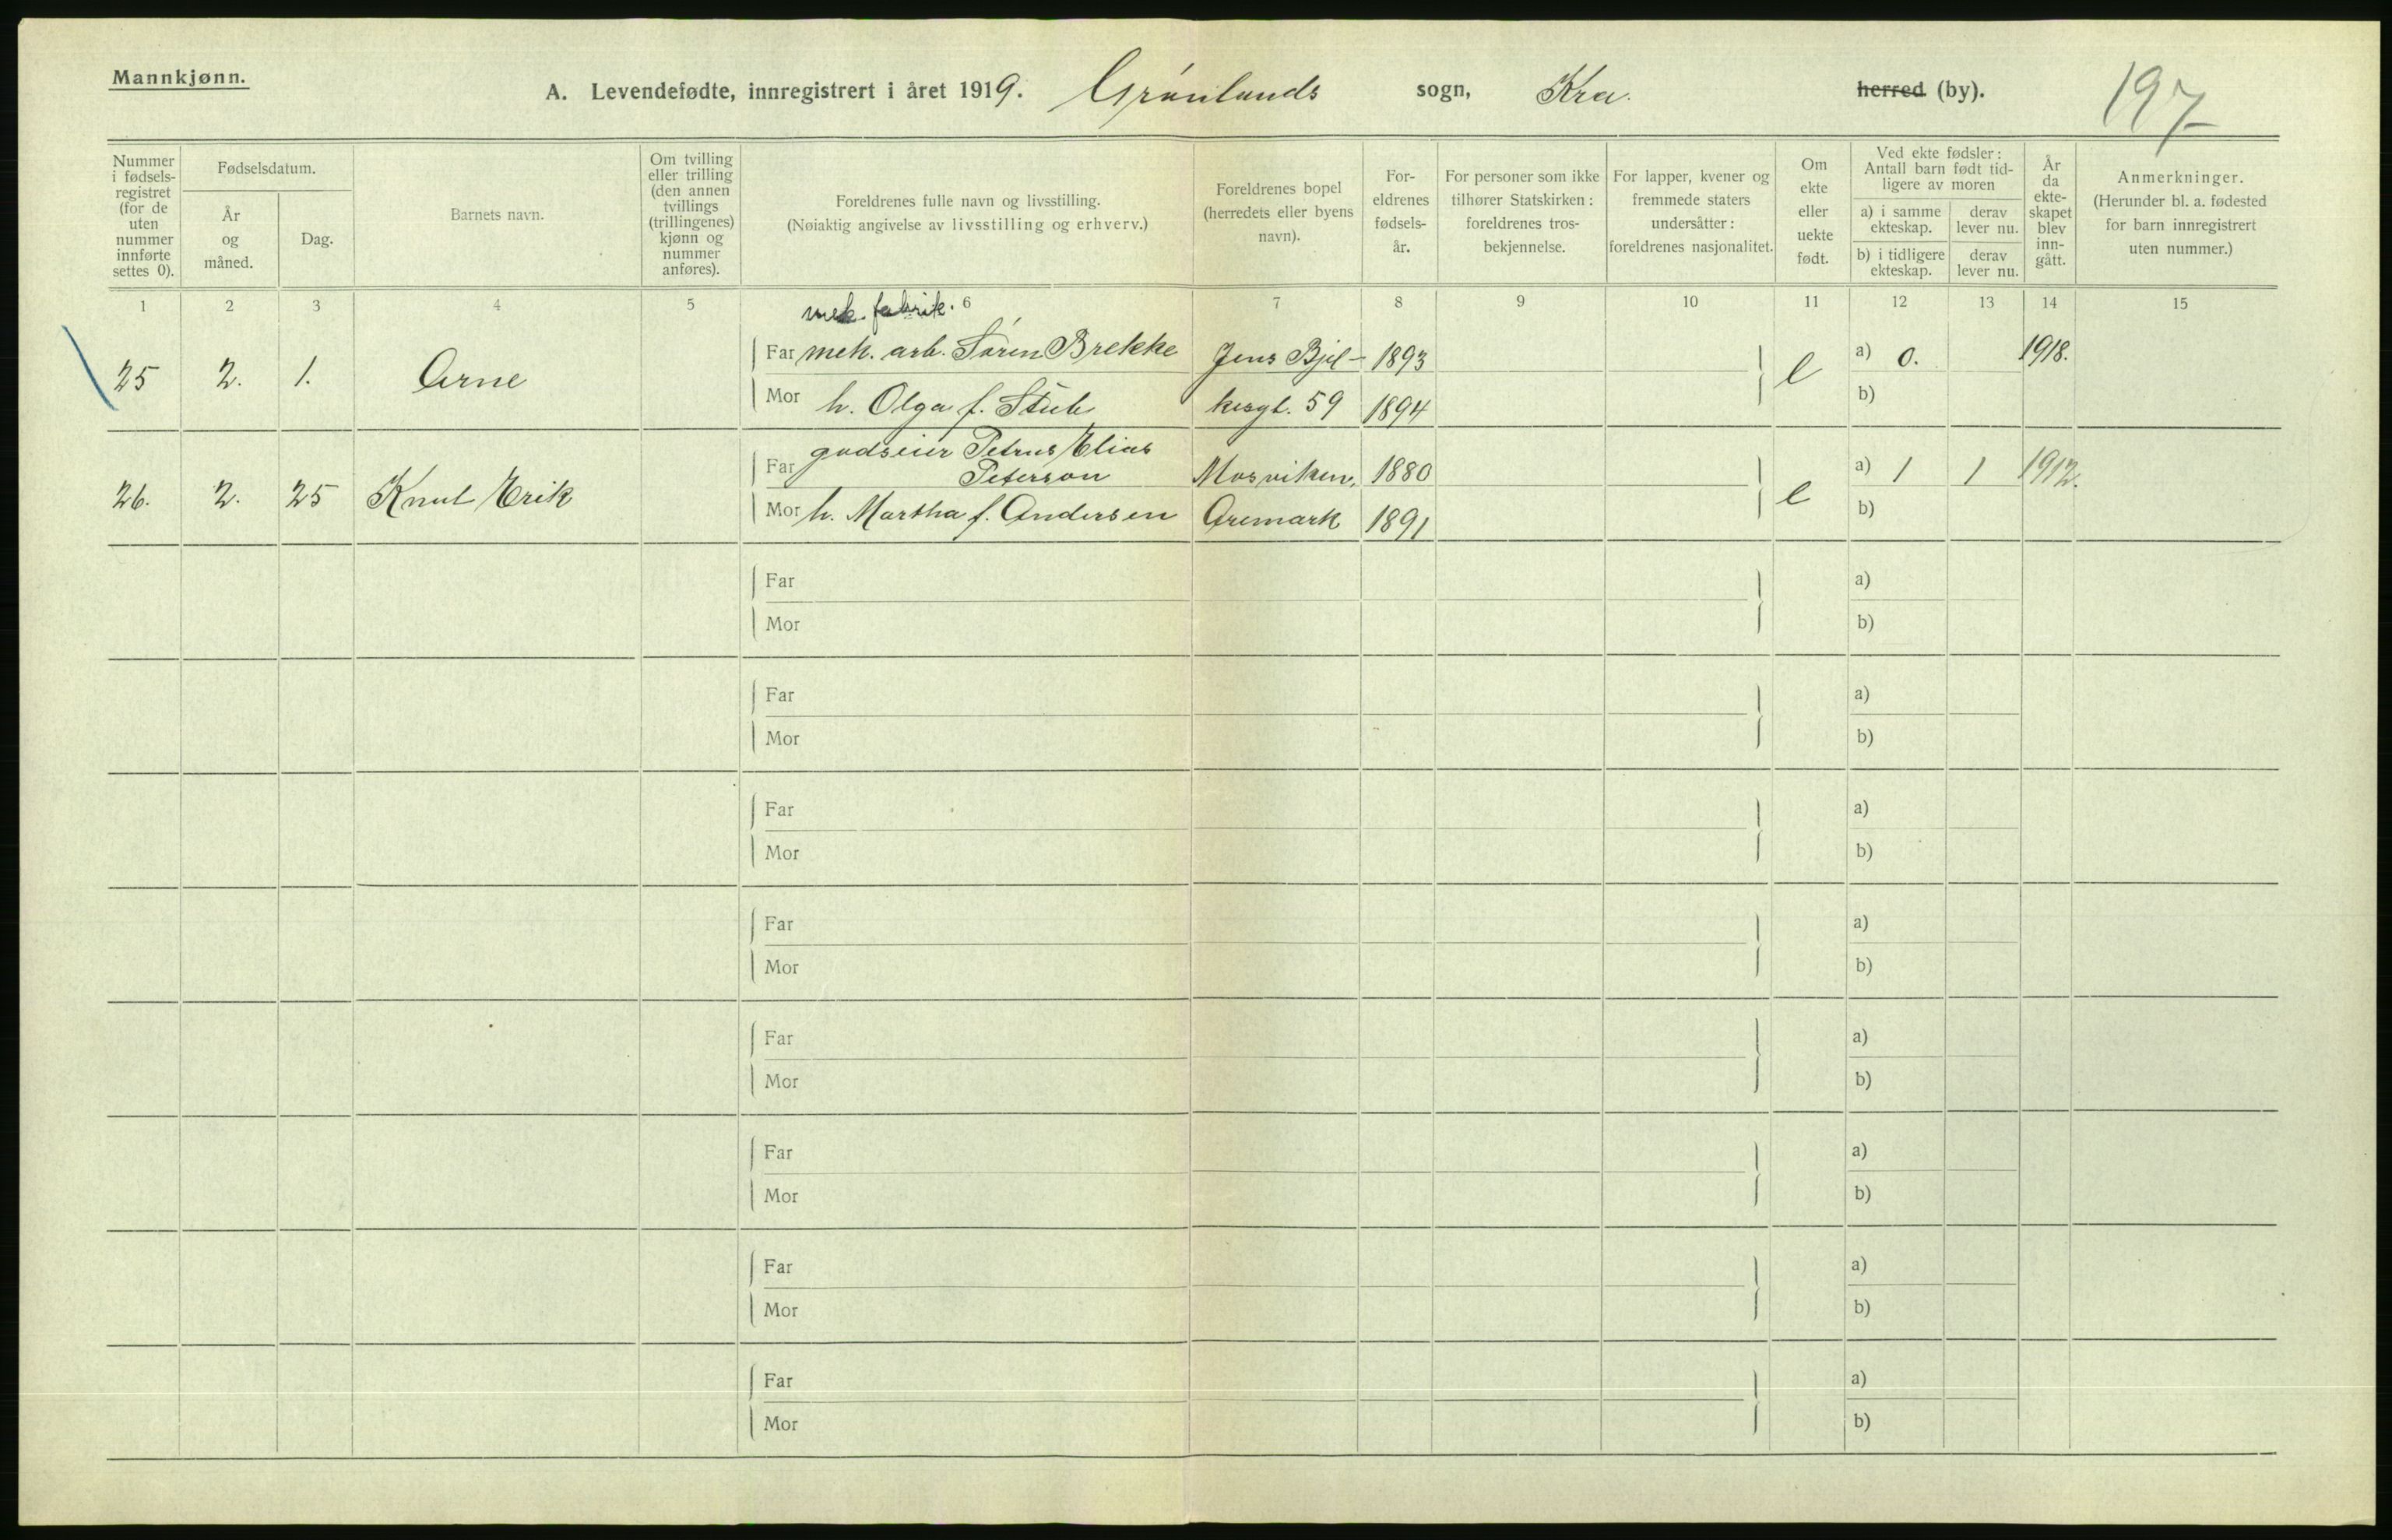 Mannkjønn.
A. Levendefødte, innregistrert i året 1919. Grønlands sogn, Kra. herred (by).
197
Nummer i fødsels-registret (for de uten nummer innførte settes 0).
Fødselsdatum.
År og måned.
Dag.
Barnets navn.
Om tvilling eller trilling (den annen tvillings (trillingenes) kjønn og nummer anføres).
Foreldrenes fulle navn og livsstilling.
(Nøiaktig angivelse av livsstilling og erhverv.)
Foreldrenes bopel (herredets eller byens navn).
For-eldrenes fødsels-år.
For personer som ikke tilhører Statskirken: foreldrenes tros-bekjennelse.
For lapper, kvener og fremmede staters undersåtter: foreldrenes nasjonalitet.
Om ekte eller uekte født.
Ved ekte fødsler: Antall barn født tid-ligere av moren
a) i samme ekteskap.
derav lever nu.
b) i tidligere ekteskap.
derav lever nu.
År da ekte-skapet blev inn-gått.
Anmerkninger.
(Herunder bl. a. fødested for barn innregistrert uten nummer.)
1 2 3 4 5 6 7 8 9 10 11 12 13 14 15
mek. fabrik.
25 2. 1. Arne Far mek. arb. Søren Brekke Jens Bjel- 1893 e a) 0. 1918.
Mor h. Olga f. Stub kesgt. 59 1894 b)
godseier Petrus Elias
26. 2. 25 Knut Erik Far Peterson Mosviken, 1880 e a) 1 1 1912.
Mor h. Martha f. Andersen Aremark 1891 b)
Far a)
Mor b)
Far a)
Mor b)
Far a)
Mor b)
Far a)
Mor b)
Far a)
Mor b)
Far a)
Mor b)
Far a)
Mor b)
Far a)
Mor b)